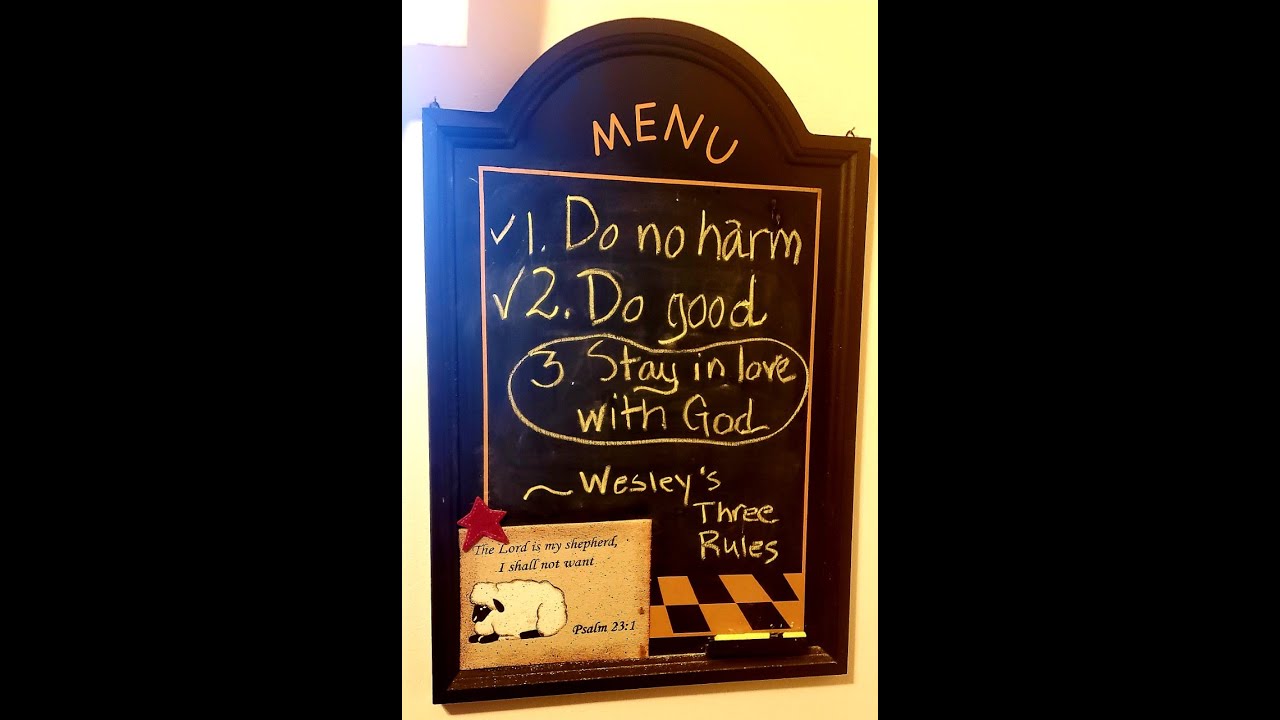 MENU
✓1. Do no harm
✓2. Do good
3. Stay in love
with God
~ Wesley's
Three
Rules
The Lord is my shepherd,
I shall not want
Psalm 23:1